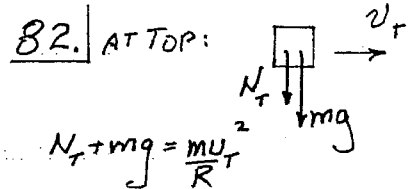 82. AT TOP:
v_T
N_T
mg
N_T + mg = mv_T²/R